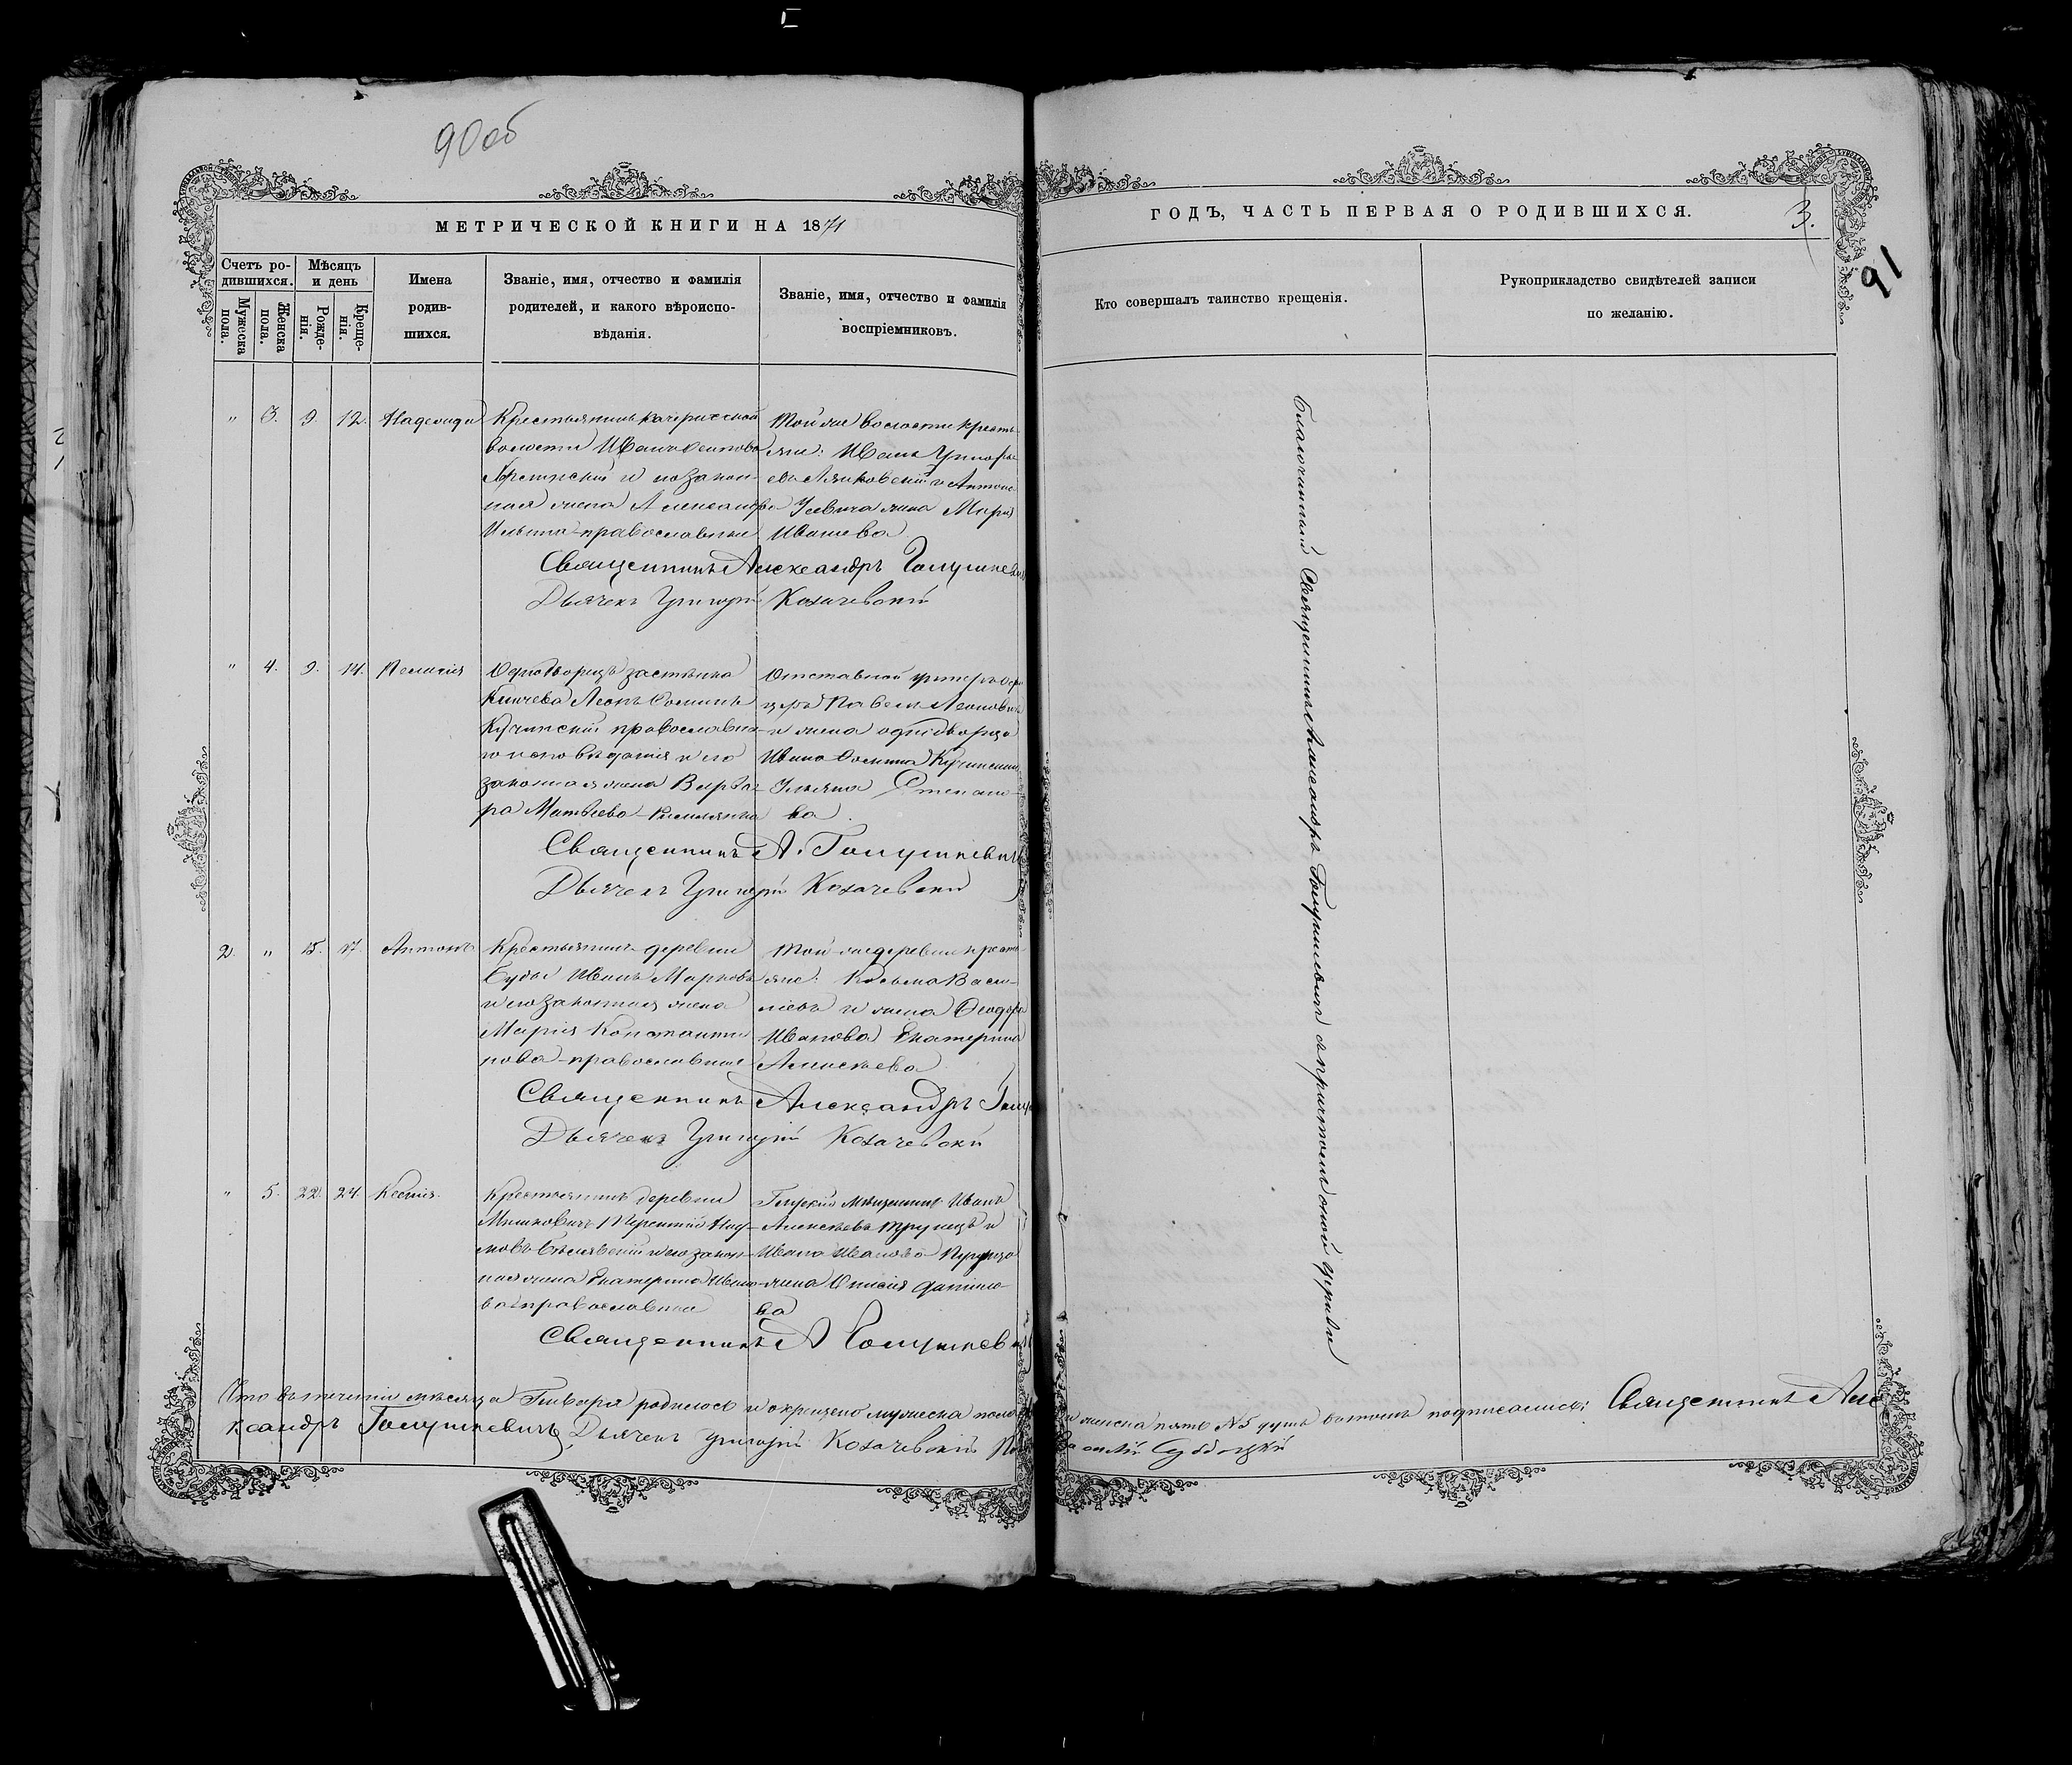 90 об
МЕТРИЧЕСКОЙ КНИГИ НА 1871
ГОДЪ, ЧАСТЬ ПЕРВАЯ О РОДИВШИХСЯ.
3.
91
Счетъ ро-
дившихся.
Мужеска
пола.
Женска
пола.
Мѣсяцъ
и день
Рожде-
нія.
Креще-
нія.
Имена
родив-
шихся.
Званіе, имя, отчество и фамилія
родителей, и какого вѣроиспо-
вѣданія.
Званіе, имя, отчество и фамилія
воспріемниковъ.
Кто совершалъ таинство крещенія.
Рукоприкладство свидѣтелей записи
по желанію.
" 3. 9. 12. Надежда
Крестьянинъ
волости Иванъ
и его закон-
ная жена Александра
Ильина православные
Той же волости кресть-
яне: Иванъ Григорь-
евъ и Антона
жена Марія
Ивашева
Священникъ Александръ Голушкевичъ
Дьячекъ Григорій Козачевскій
" 4. 9. 14. Пелагія
Однодворецъ застѣнка
Леонъ Фоминъ
Кучинскій православна-
го исповѣданія и его
законная жена Варва-
ра Матвѣева Римлянка
Отставной унтеръ-офи-
церъ Павелъ Леоновъ
и жена однодворца
Ивана Фомина Кучинскаго
Ульяна Степано-
ва.
Священникъ А. Голушкевичъ
Дьячекъ Григорій Козачевскій
2. " 15. 17. Антонъ
Крестьянинъ деревни
Буды Иванъ Марковъ
и его законная жена
Марія Константи-
нова православные
Той же деревни кресть-
яне: Козьма Васи-
льевъ и жена Феодора
Иванова Екатерина
Алексѣева
Священникъ Александръ
Дьячекъ Григорій Козачевскій
" 5. 22. 24. Ксенія.
Крестьянинъ деревни
Мышковичъ Терентій
и его закон-
ная жена Екатерина Ивано-
ва православные
Глускій мѣщанинъ Иванъ
Алексѣевъ и
Ивана Иванова
жена
ва
Священникъ А Голушкевичъ
Благочинный Священникъ Александръ съ причтомъ оной церкви
Что въ теченіи мѣсяца Генваря родилось и окрещено мужеска пола и женска пять №5 душъ въ томъ подписались: Священникъ Але
ксандръ Голушкевичъ, Дьячекъ Григорій Козачевскій